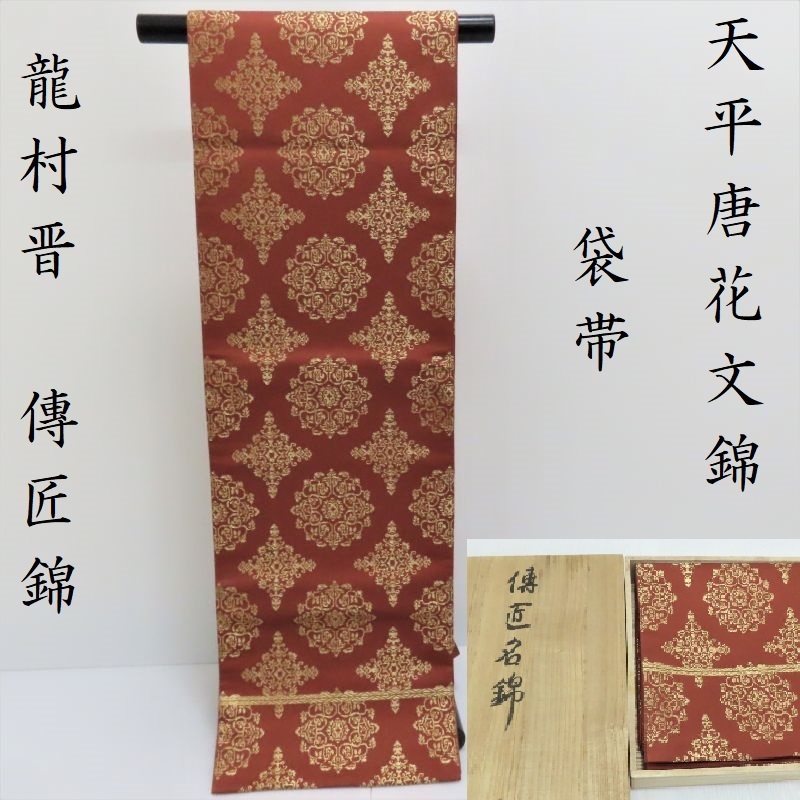 天平唐花文錦
袋帯
龍村晋 傳匠錦
傳匠名錦